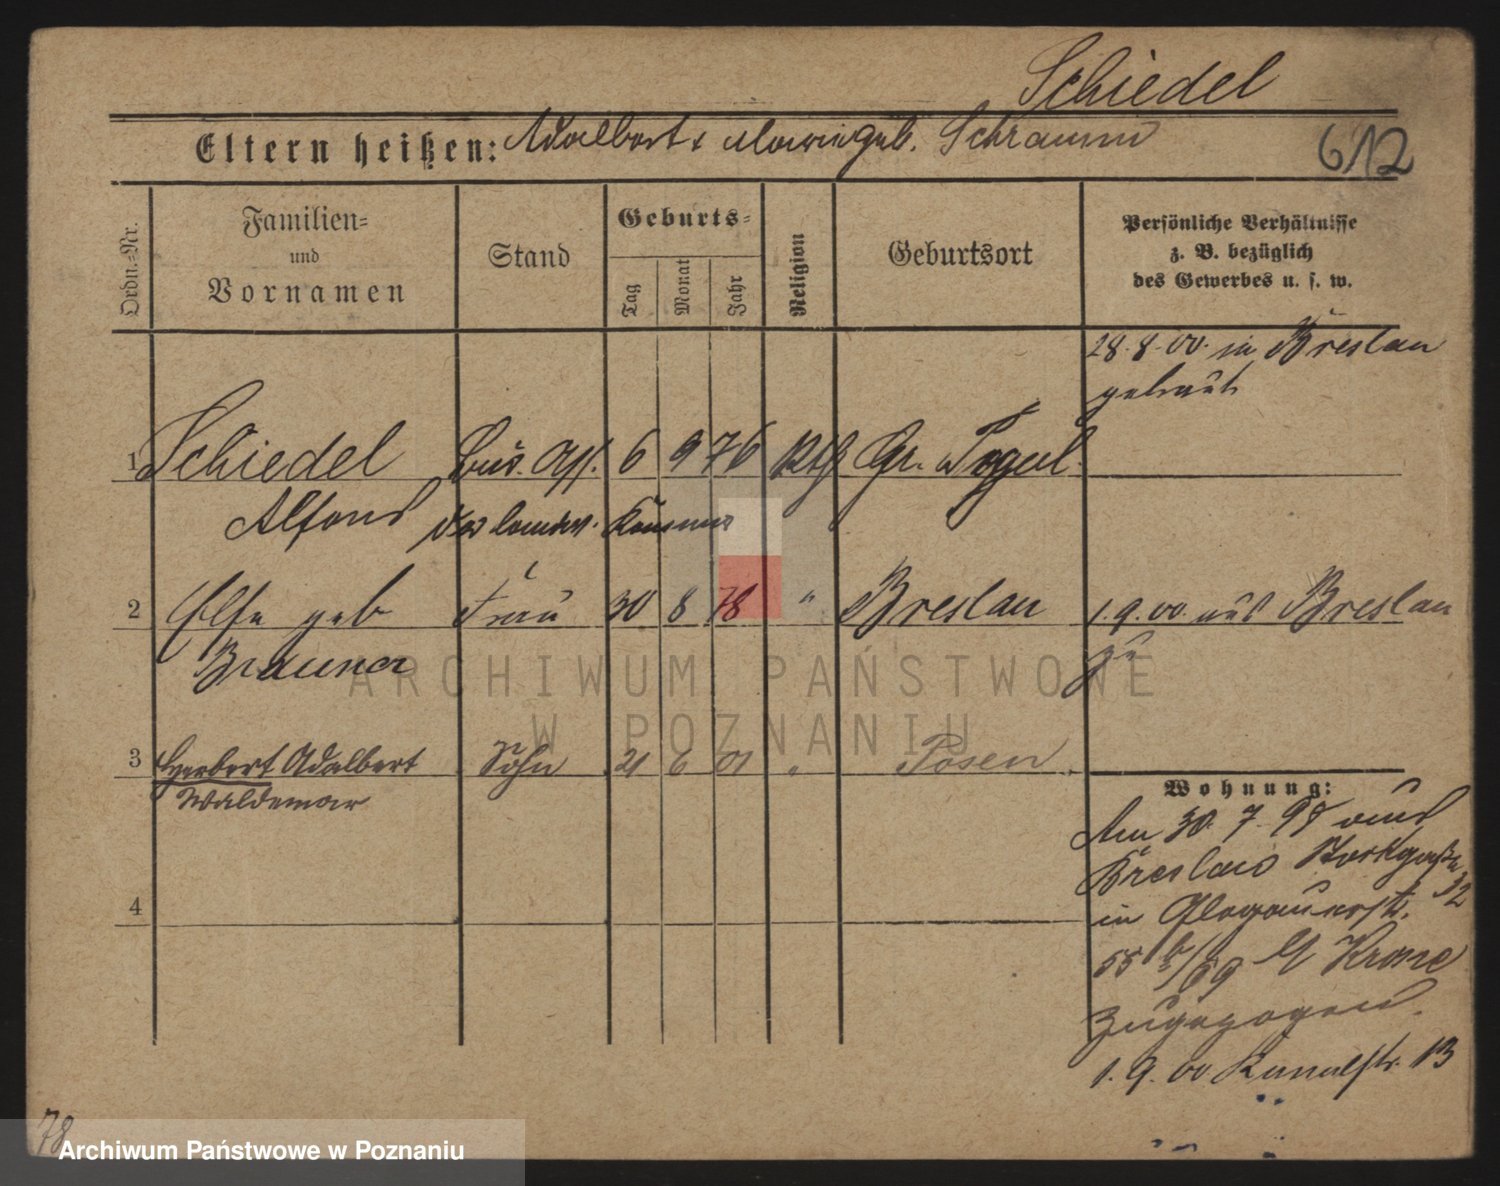 Schiedel
Eltern heißen: Adalbert & Marie geb. Schramm
612
Ordn.=Nr.
Familien=
und
Vornamen
Stand
Geburts=
Tag
Monat
Jahr
Religion
Geburtsort
Persönliche Verhältnisse
z. B. bezüglich
des Gewerbes u. s. w.
28.8.00. in Breslau
getraut
1 Schiedel Bür. Ass. 6 9 76 Kth Gr.
Alfons der landw. Kammer
2 Else geb Frau 30 8 78 " Breslau 1.9.00. aus Breslau
Brauner zu
3 Herbert Adalbert Sohn 21 6 01 " Posen
Waldemar
Wohnung:
Am 30. 7. 98 aus
Breslau
32
in Glogauerstr.
55 /69 Krone
zugezogen.
1. 9. 00 Kanalstr. 13
4
78
ARCHIWUM PAŃSTWOWE
W POZNANIU
Archiwum Państwowe w Poznaniu